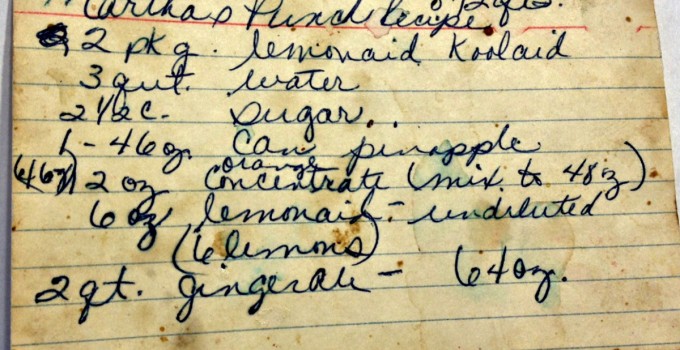 Martha's Punch Recipe 8 12 qts.
2 pkg. lemonaid Koolaid
3 qut. water
2 1/2 c. sugar.
1 - 46 oz. can pinapple
orange
(46oz) 2 oz concentrate (mix. to 48 z)
6 oz lemonaid - undiluted
(6 lemons)
2 qt. gingerale - 64 oz.